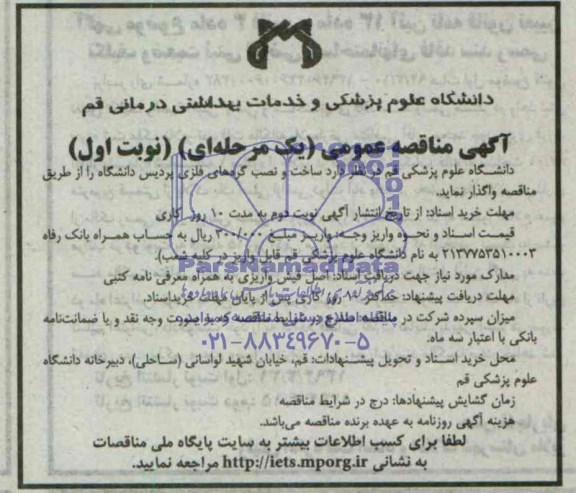 دانشگاه علوم پزشکی و خدمات بهداشتی درمانی قم
آگهی مناقصه عمومی (یک مرحله‌ای) (نوبت اول)
دانشگاه علوم پزشکی قم در نظر دارد ساخت و نصب گردهای فلزی پردیس دانشگاه را از طریق
مناقصه واگذار نماید.
مهلت خرید اسناد: از تاریخ انتشار آگهی نوبت دوم به مدت ۱۰ روز کاری
قیمت اسناد و نحوه واریز وجه: واریز مبلغ ۳۰۰/۰۰۰ ریال به حساب همراه بانک رفاه
۲۱۳۷۷۵۳۵۱۰۰۰۳ به نام دانشگاه علوم پزشکی قم قابل واریز در کلیه شعب).
ParsNamadData
مدارک مورد نیاز جهت دریافت اسناد: اصل فیش واریزی به همراه معرفی نامه کتبی
مهلت دریافت پیشنهاد: حداکثر روز کاری پس از پایان مهلت خرید اسناد.
میزان سپرده شرکت در مناقصه: مندرج در شرایط مناقصه که به صورت وجه نقد و یا ضمانت‌نامه
بانکی با اعتبار سه ماه.
۰۲۱-۸۸۳۴۹۶۷۰-۵
محل خرید اسناد و تحویل پیشنهادات: قم، خیابان شهید لواسانی (ساحلی)، دبیرخانه دانشگاه
علوم پزشکی قم
زمان گشایش پیشنهادها: درج در شرایط مناقصه
هزینه آگهی روزنامه به عهده برنده مناقصه می‌باشد.
لطفا برای کسب اطلاعات بیشتر به سایت پایگاه ملی مناقصات
به نشانی http://iets.mporg.ir مراجعه نمایید.